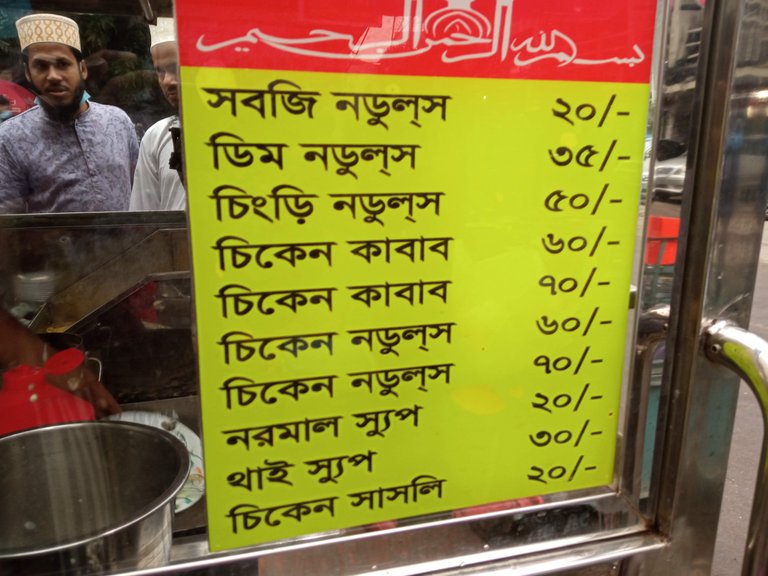 بسم الله الرحمن الرحيم
সবজি নডুল্স ২০/-
ডিম নডুল্স ৩৫/-
চিংড়ি নডুল্স ৫০/-
চিকেন কাবাব ৬০/-
চিকেন কাবাব ৭০/-
চিকেন নডুল্স ৬০/-
চিকেন নডুল্স ৭০/-
নরমাল স্যুপ ২০/-
থাই স্যুপ ৩০/-
চিকেন সাসলি ২০/-